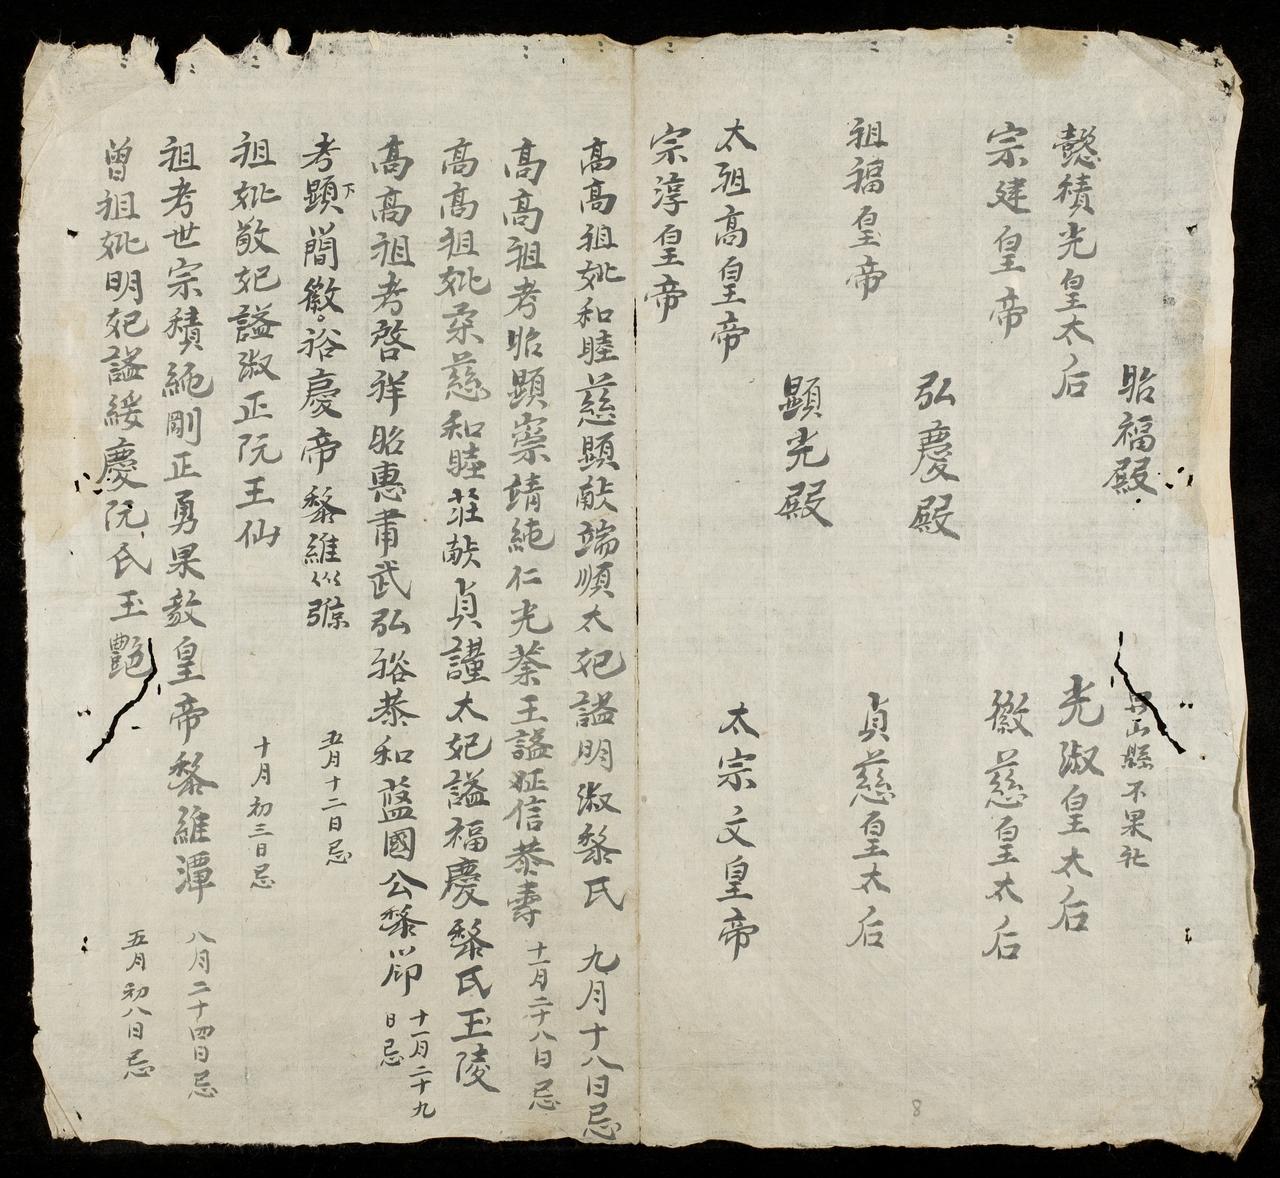 昭福殿 山縣不果社
懿積光皇太后 光淑皇太后
宗建皇帝 徽慈皇太后
弘慶殿
祖福皇帝 貞慈皇太后
顕光殿
太祖高皇帝 太宗文皇帝
宗淳皇帝
高高祖妣和睦慈顕献端順太妃謚明淑黎氏 九月十八日忌
高高祖考昭顕崇靖純仁光 王謚 信恭壽 十一月二十八日忌
高高祖妣柔慈和睦莊献貞謹太妃謚福慶黎氏玉陵
高高祖考啓祥昭惠肅武弘裕恭和藍國公黎 十一月二十九日忌
考顕下簡徽。裕慶帝 黎維 五月十二日忌
祖妣敬妃謚淑正阮王仙 十月初三日忌
祖考世宗積純剛正勇果毅皇帝黎維潭 八月二十四日忌
曾祖妣明妃謚綏慶阮氏玉艶 五月初八日忌
8